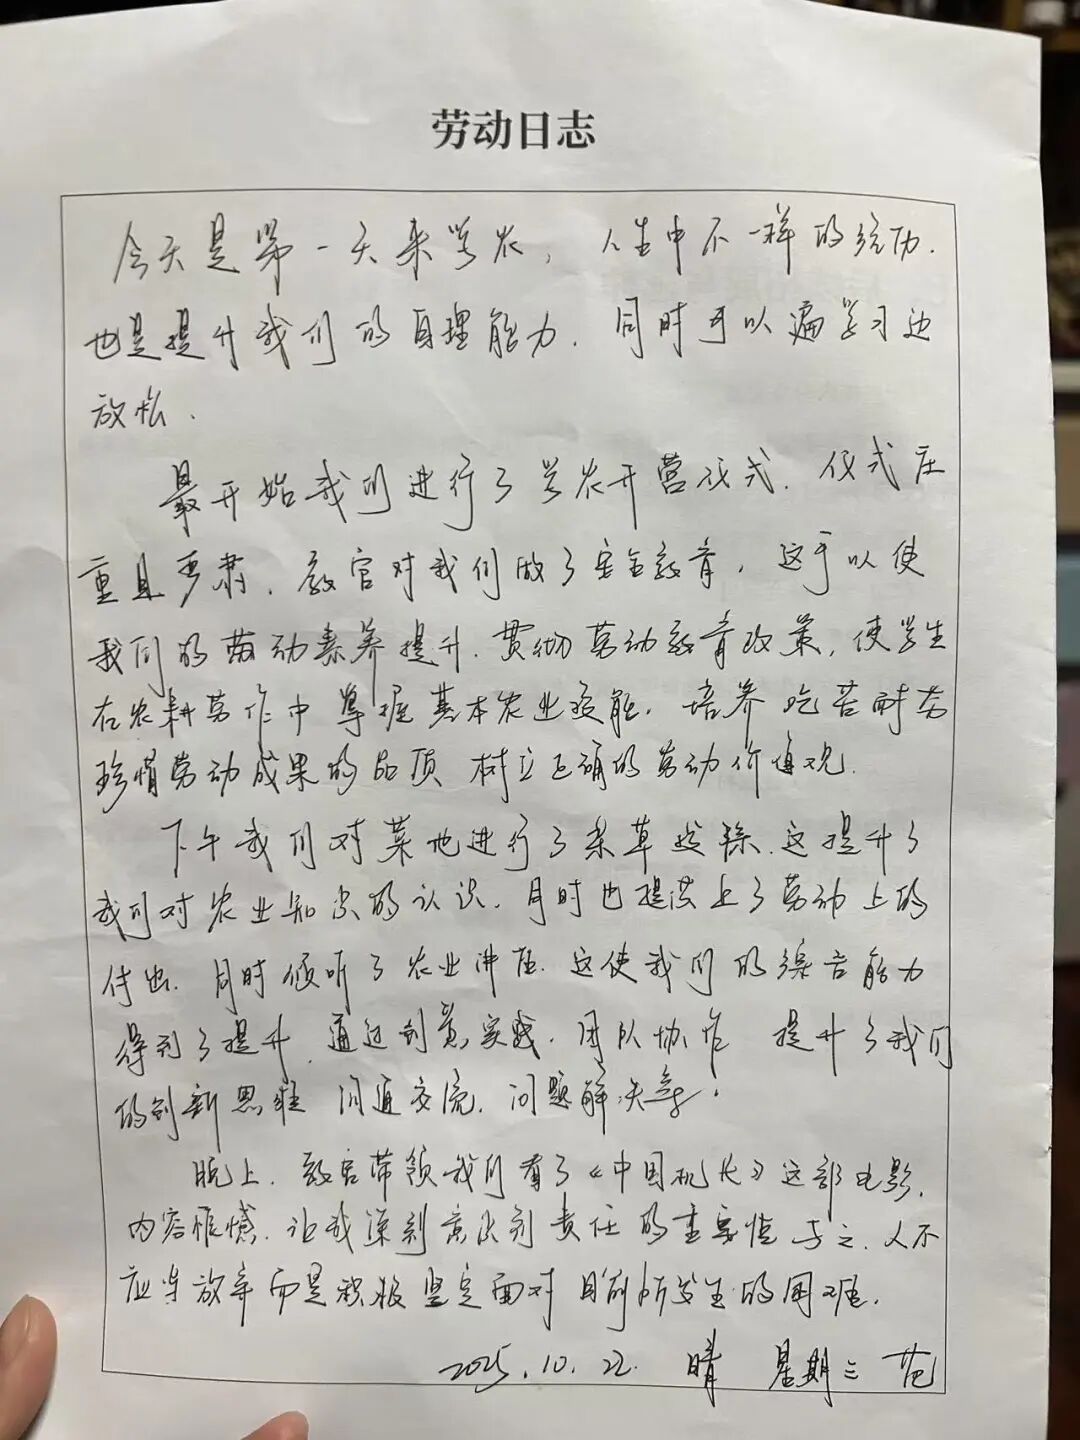 劳动日志
今天是第一天来学农, 人生中不一样的经历.
也是提升我们的自理能力. 同时可以边学习边
放松.
最开始我们进行了学农开营仪式. 仪式庄
重且严肃. 教官对我们做了安全教育, 这可以使
我们的劳动素养提升. 贯彻劳动教育政策, 使学生
在农耕劳作中 掌握基本农业技能. 培养吃苦耐劳
珍惜劳动成果的品质 树立正确的劳动价值观.
下午我们对菜地进行了杂草拔除. 这提升了
我们对农业知识的认识. 同时也提供上了劳动上的
付出. 同时倾听了农业讲座. 这使我们的综合能力
得到了提升. 通过创意实践. 团队协作 提升了我们
的创新思维 沟通交流. 问题解决等.
晚上. 教官带领我们看了《中国机长》这部电影.
内容震撼. 让我深刻意识到责任的重要性 人不
应当放弃而是积极坚定面对目前所发生的困难.
2025.10.22. 晴 星期三 范